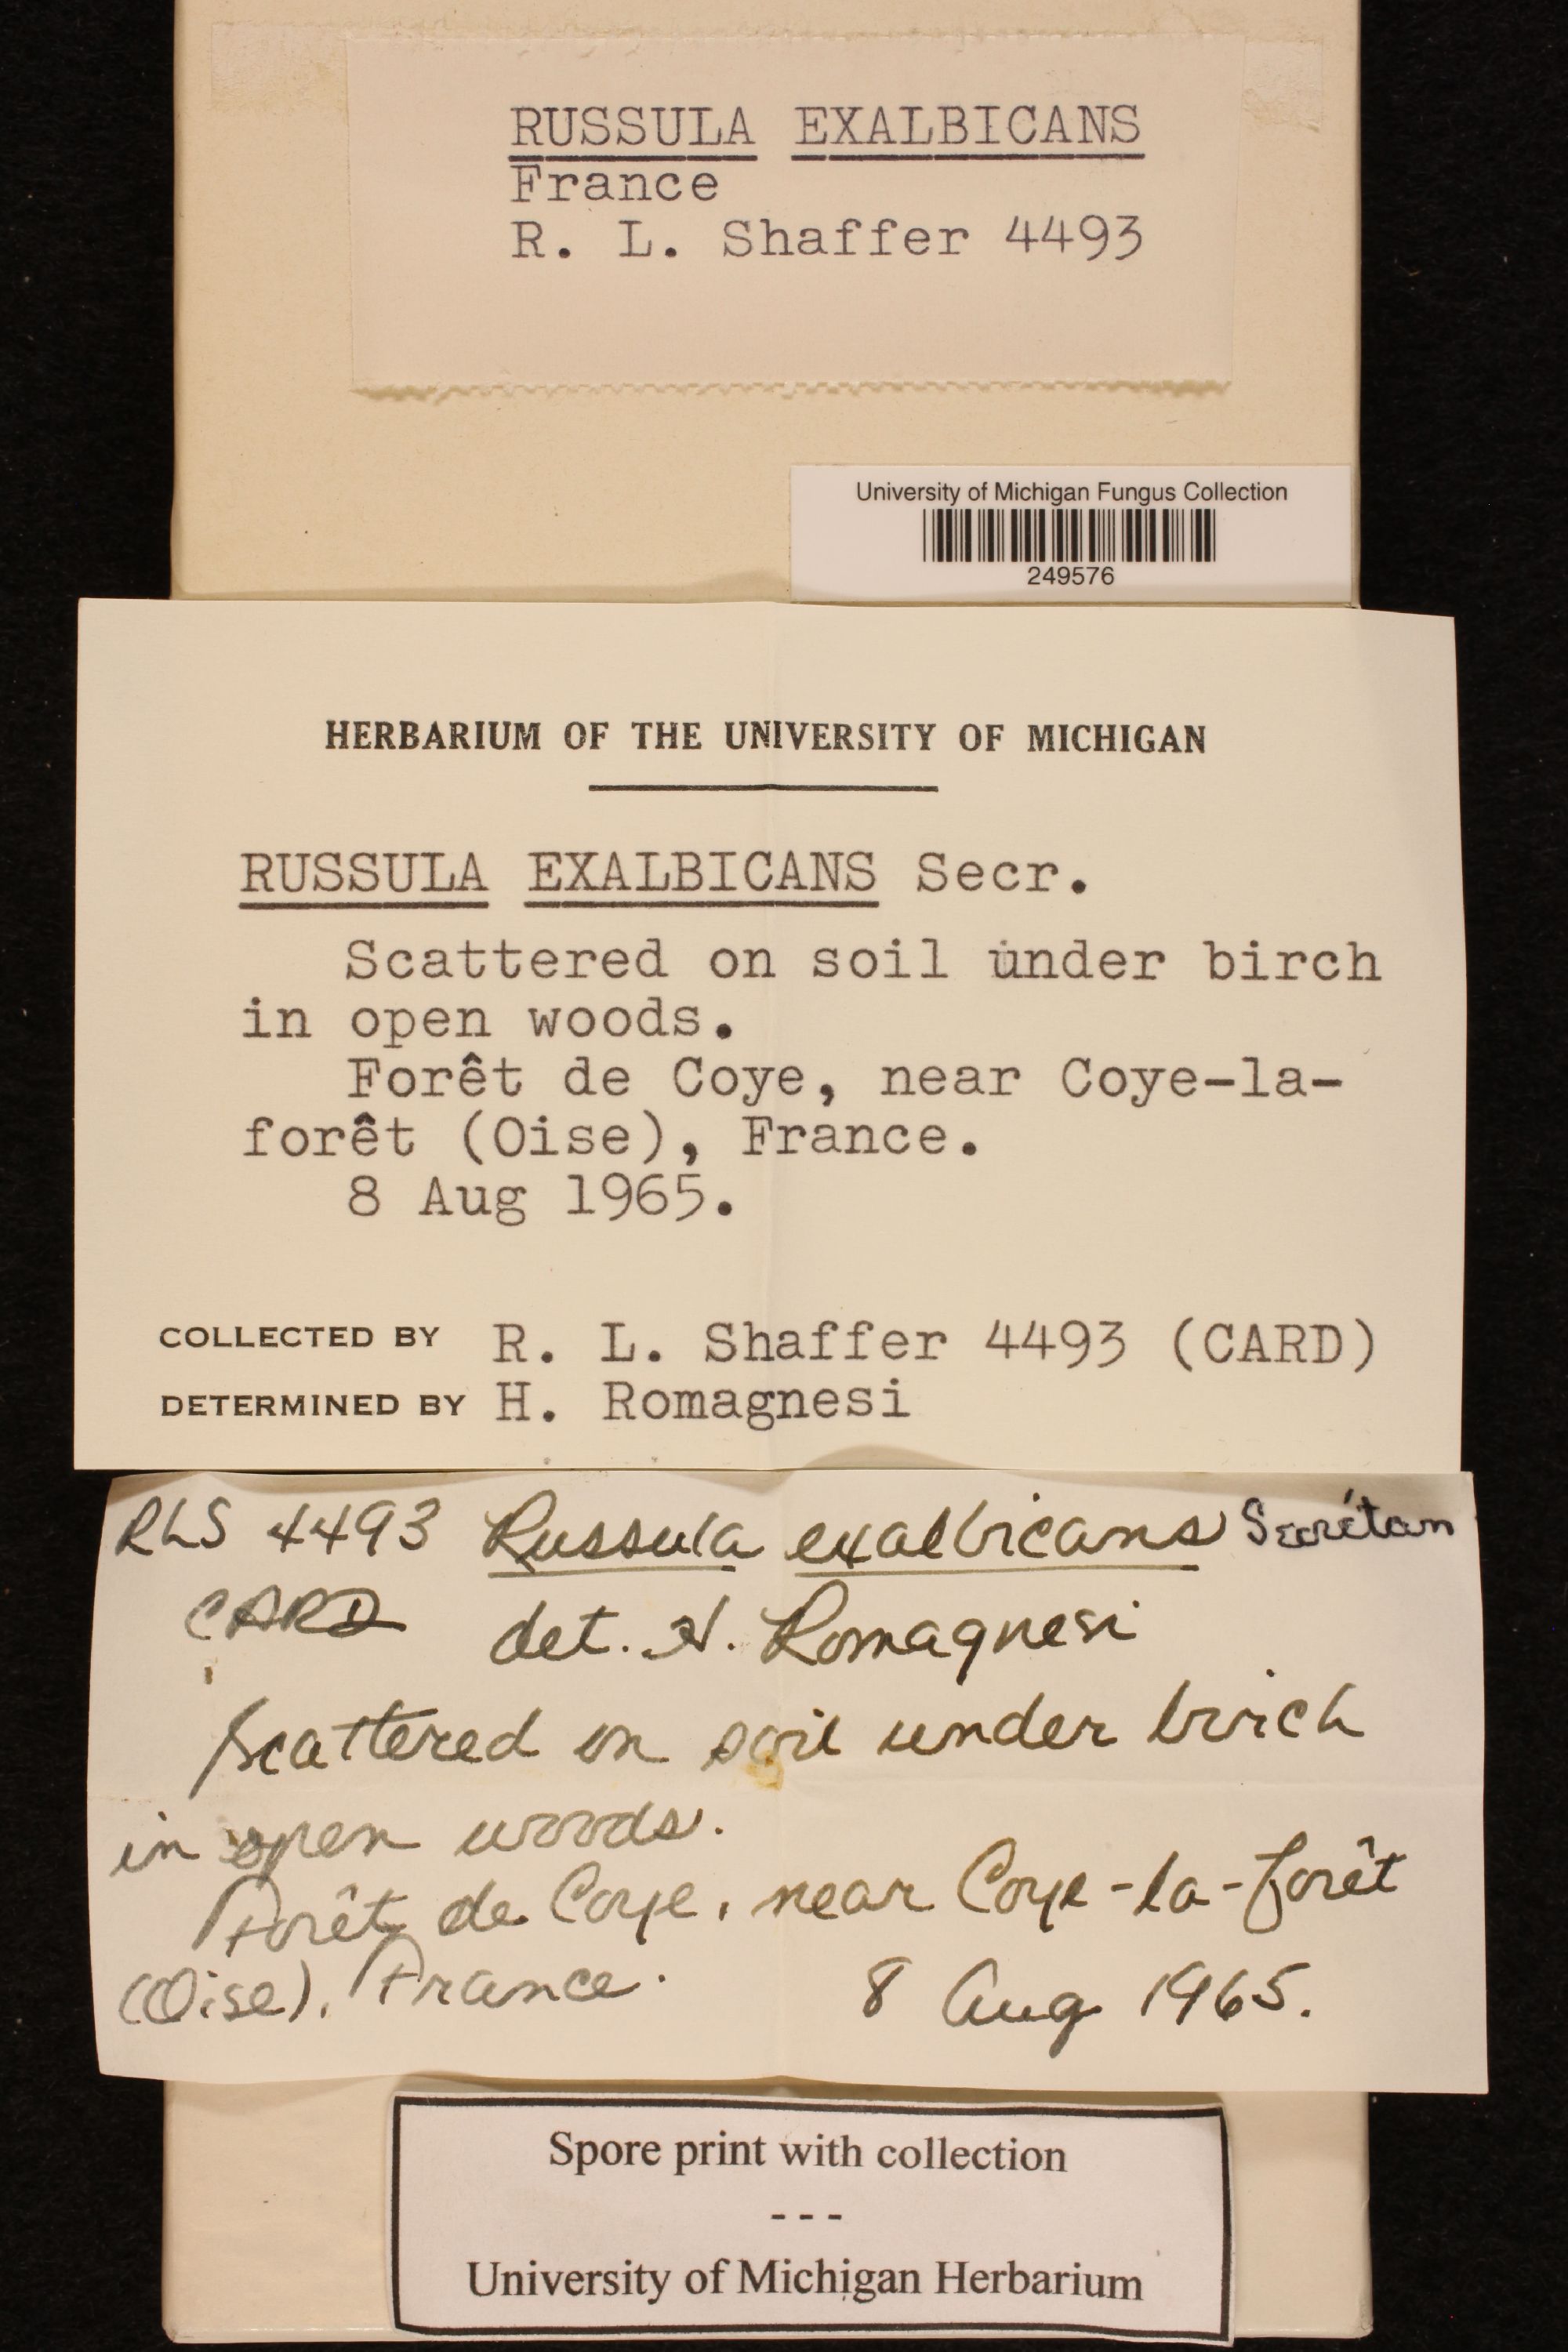 RUSSULA EXALBICANS
France
R. L. Shaffer 4493
University of Michigan Fungus Collection
249576
HERBARIUM OF THE UNIVERSITY OF MICHIGAN
RUSSULA EXALBICANS Secr.
Scattered on soil under birch
in open woods.
Forêt de Coye, near Coye-la-
forêt (Oise), France.
8 Aug 1965.
COLLECTED BY R. L. Shaffer 4493 (CARD)
DETERMINED BY H. Romagnesi
RLS 4493 Russula exalbicans Secrétan
CARD det. H. Romagnesi
Scattered on soil under birch
in open woods.
Forêt de Coye, near Coye-la-forêt
(Oise), France. 8 Aug 1965.
Spore print with collection
---
University of Michigan Herbarium